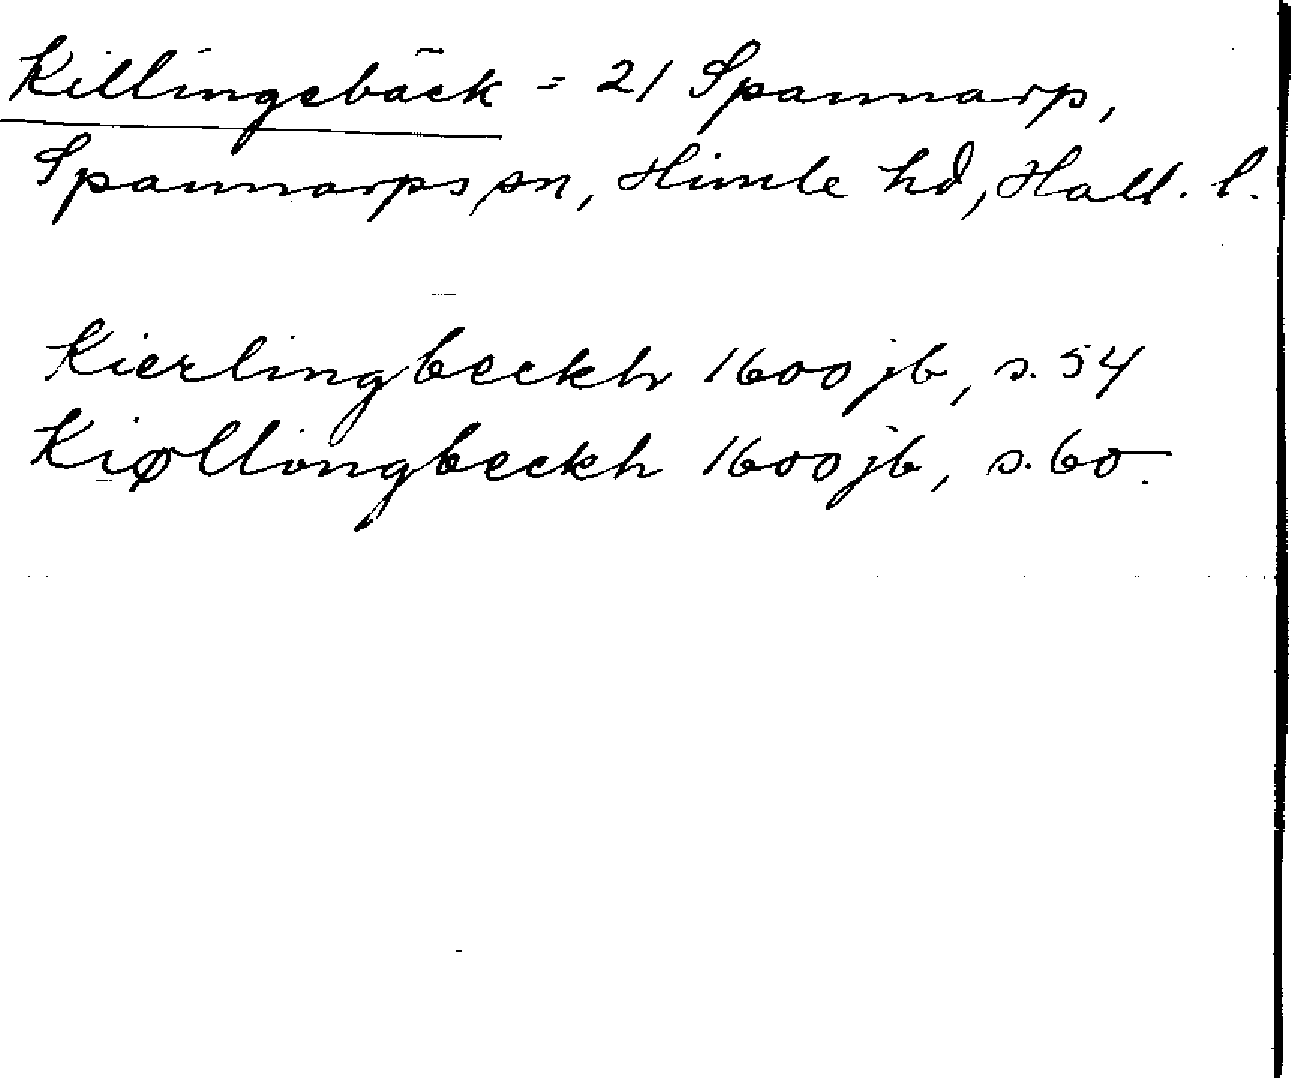 Killingebäck = 21 Spannarp,
Spannarps sn, Himle hd, Hall. l.
Kierlingbeckh 1600 jb, s. 54
Kiøllingbeckh 1600 jb, s. 60.